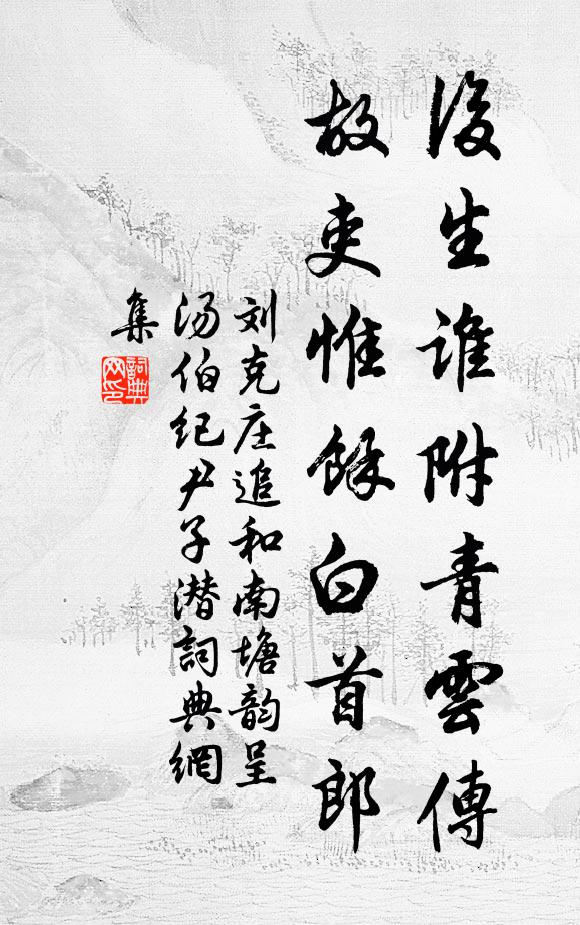 後生谁附青雲傳
故吏惟餘白首郎
刘克庄追和南塘韵呈
汤伯纪尹子潜詞典網
集
詞典
网印